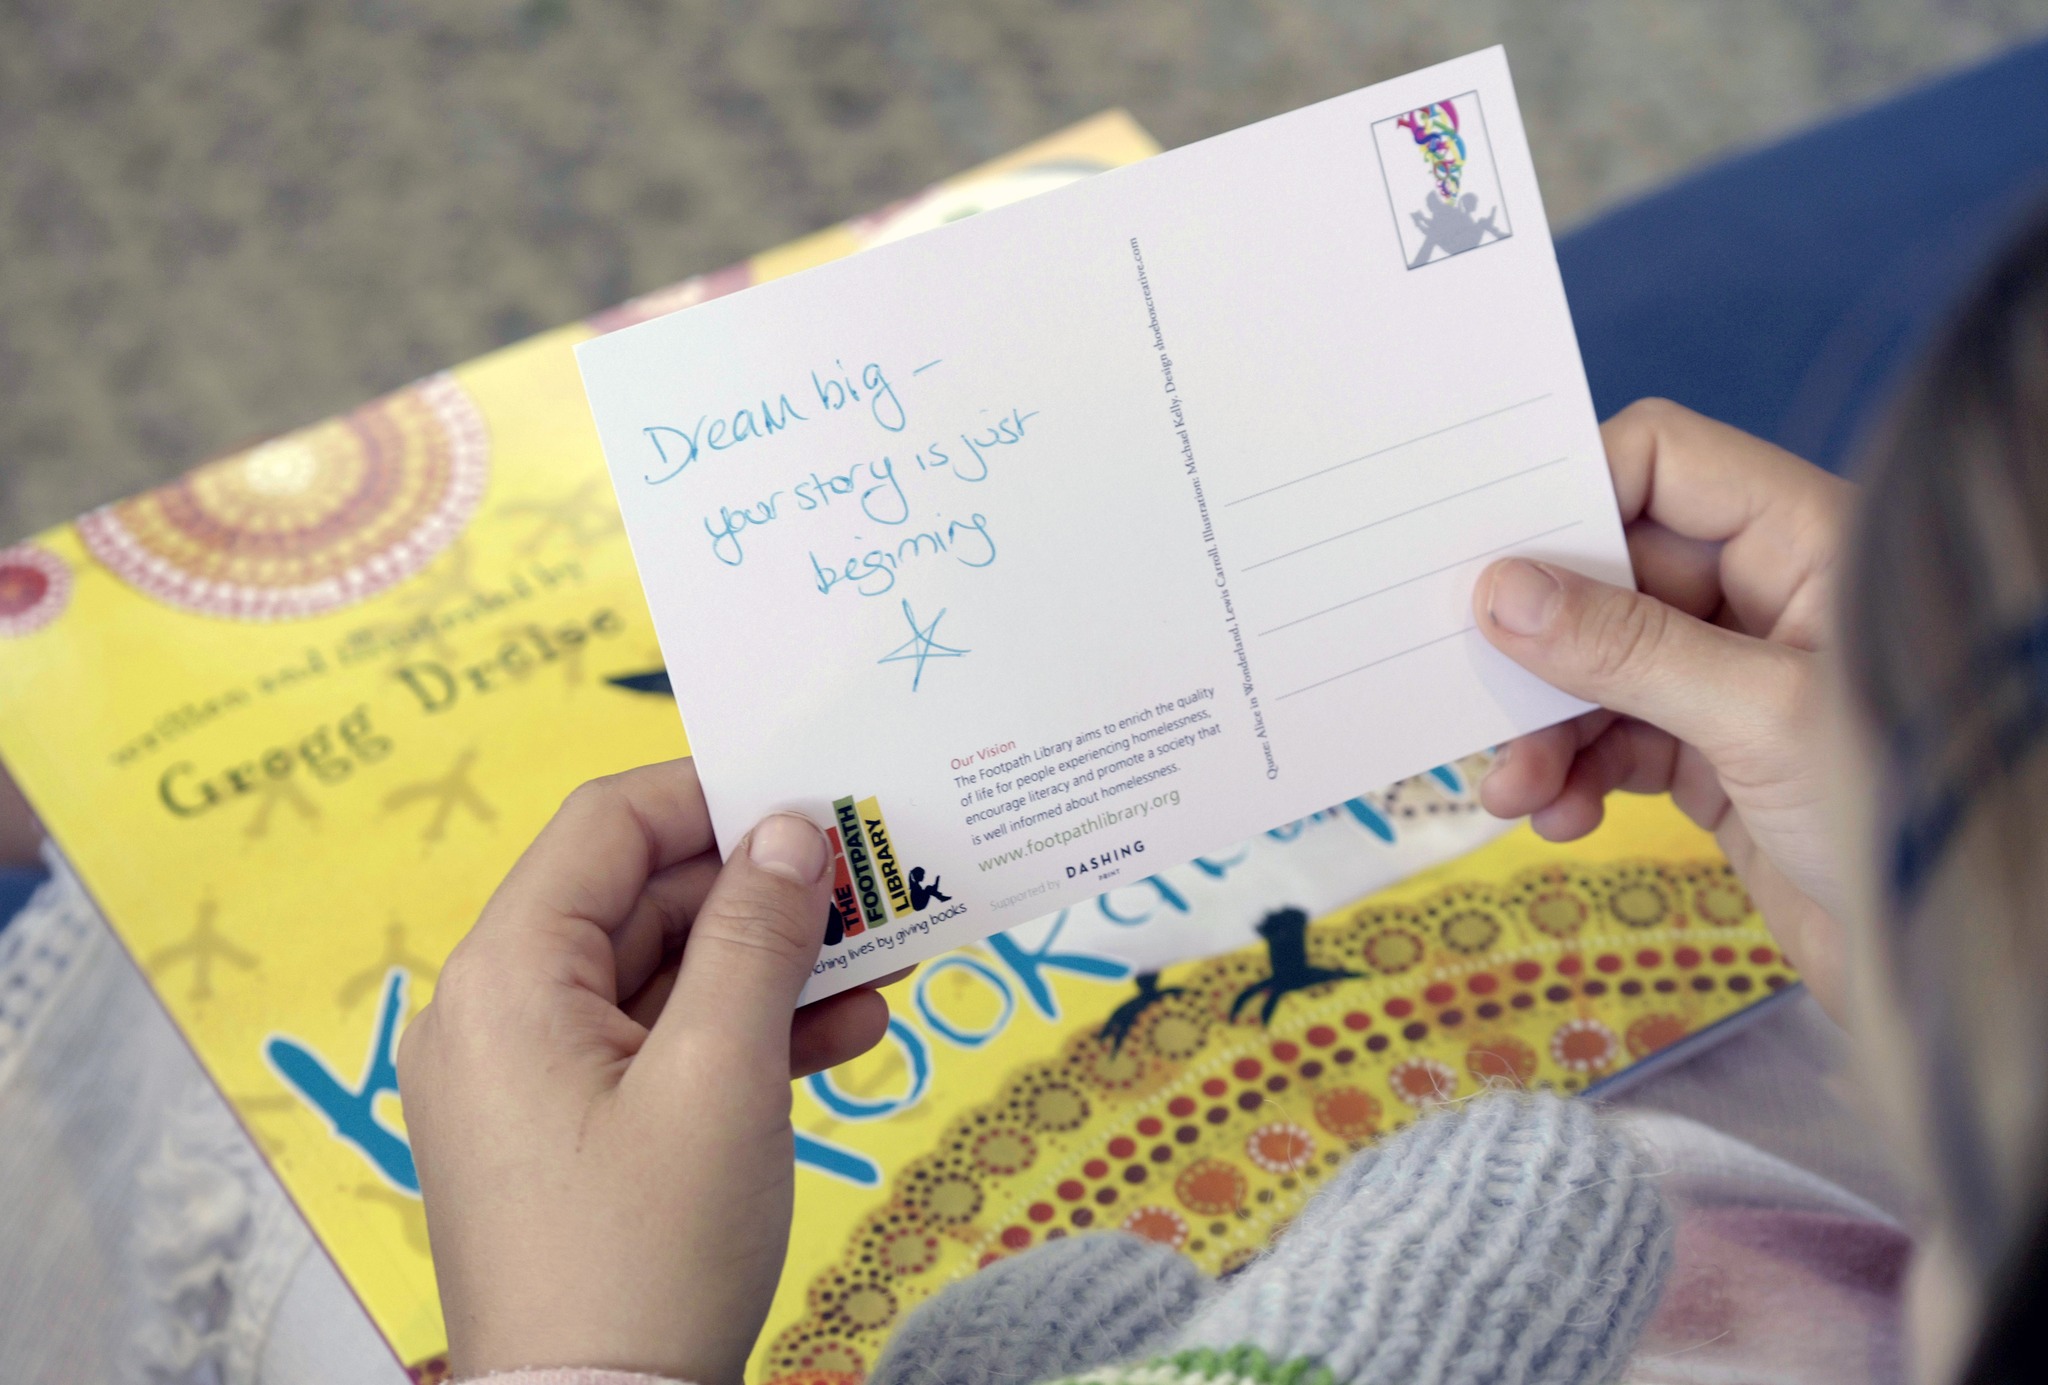 Dream big –
your story is just
beginning
Our Vision
The Footpath Library aims to enrich the quality
of life for people experiencing homelessness,
encourage literacy and promote a society that
is well informed about homelessness.
www.footpathlibrary.org
Supported by DASHING
PRINT
THE
FOOTPATH
LIBRARY
lives by giving books
Quote: Alice in Wonderland, Lewis Carroll. Illustration: Michael Kelly. Design shoeboxcreative.com
written and illustrated by
Gregg Dreise